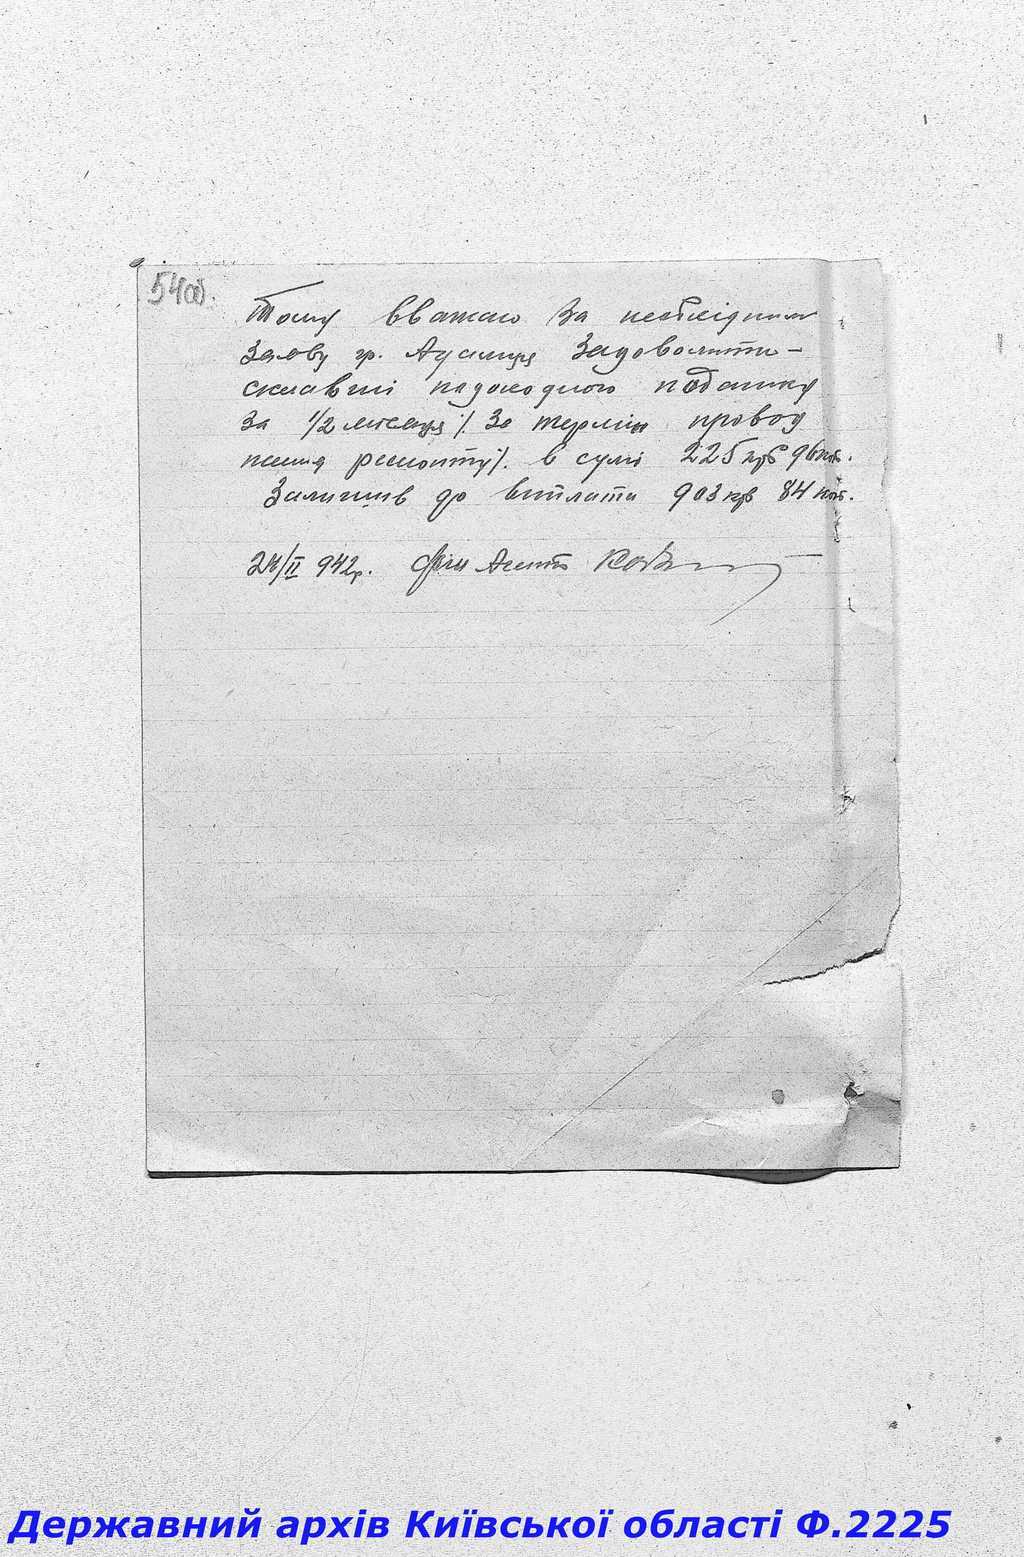 54об.
Тому вважаю за необхідним
заяву гр. Адамця задовольнити –
склавши подоходного податку
за 1/2 місяця /. За термін провод
ження ремонту /. в сумі 225 крб 96 коп.
Залишив до виплати 903 крб 84 коп.
24/II 942р. Фін Агент
Державний архів Київської області Ф.2225